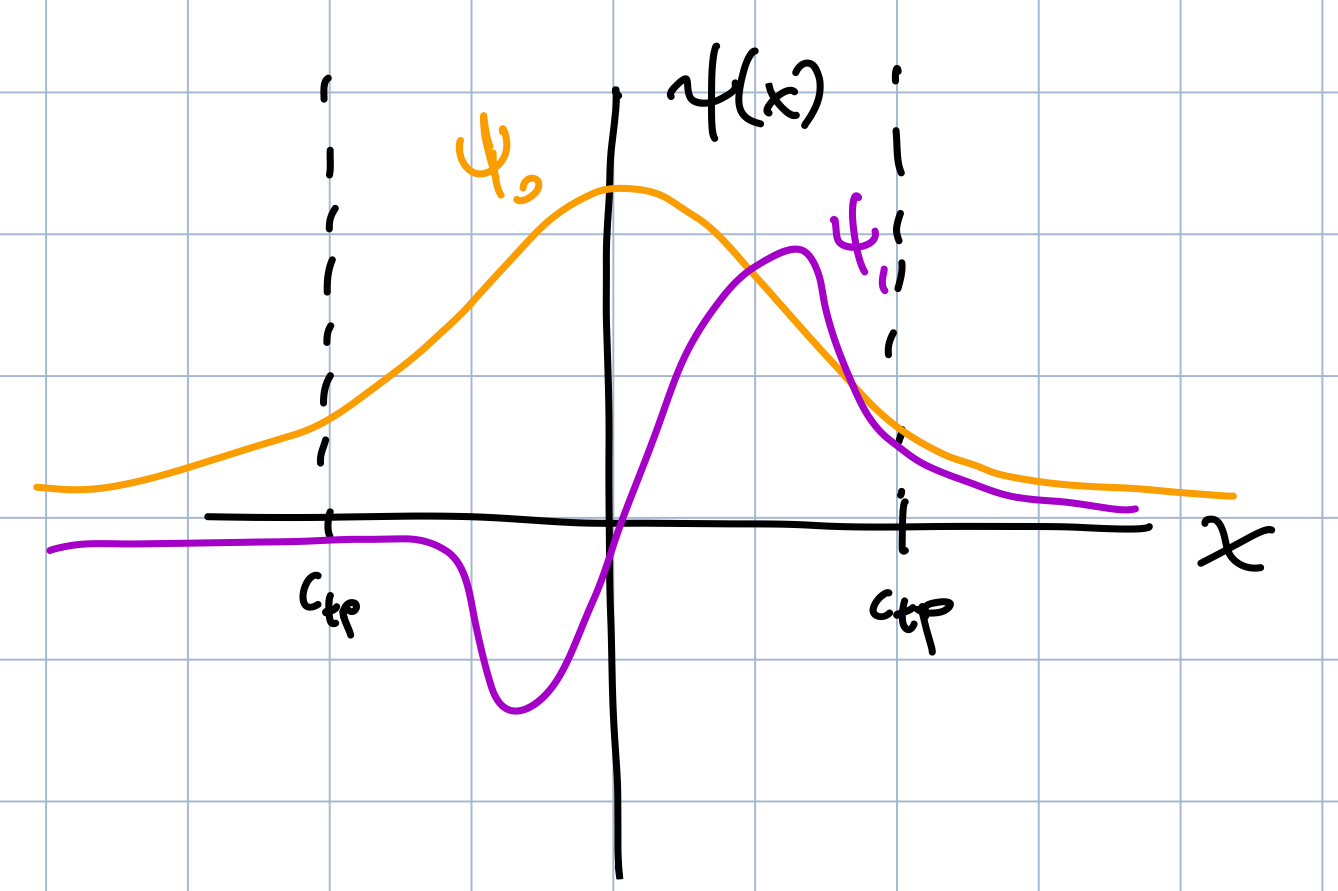 ψ(x)
ψ₀
ψ₁
x
ctp
ctp